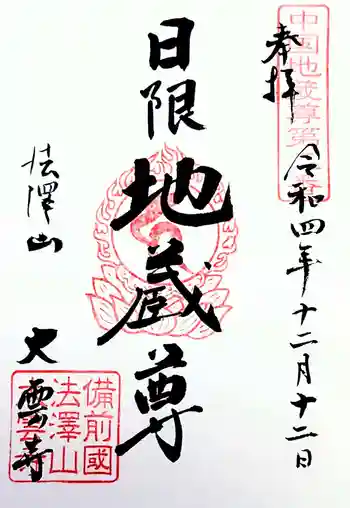 奉拝
令和四年十二月十二日
日限
地蔵尊
法澤山
大雲寺
中国地蔵尊第
備前國
法澤山
大雲寺